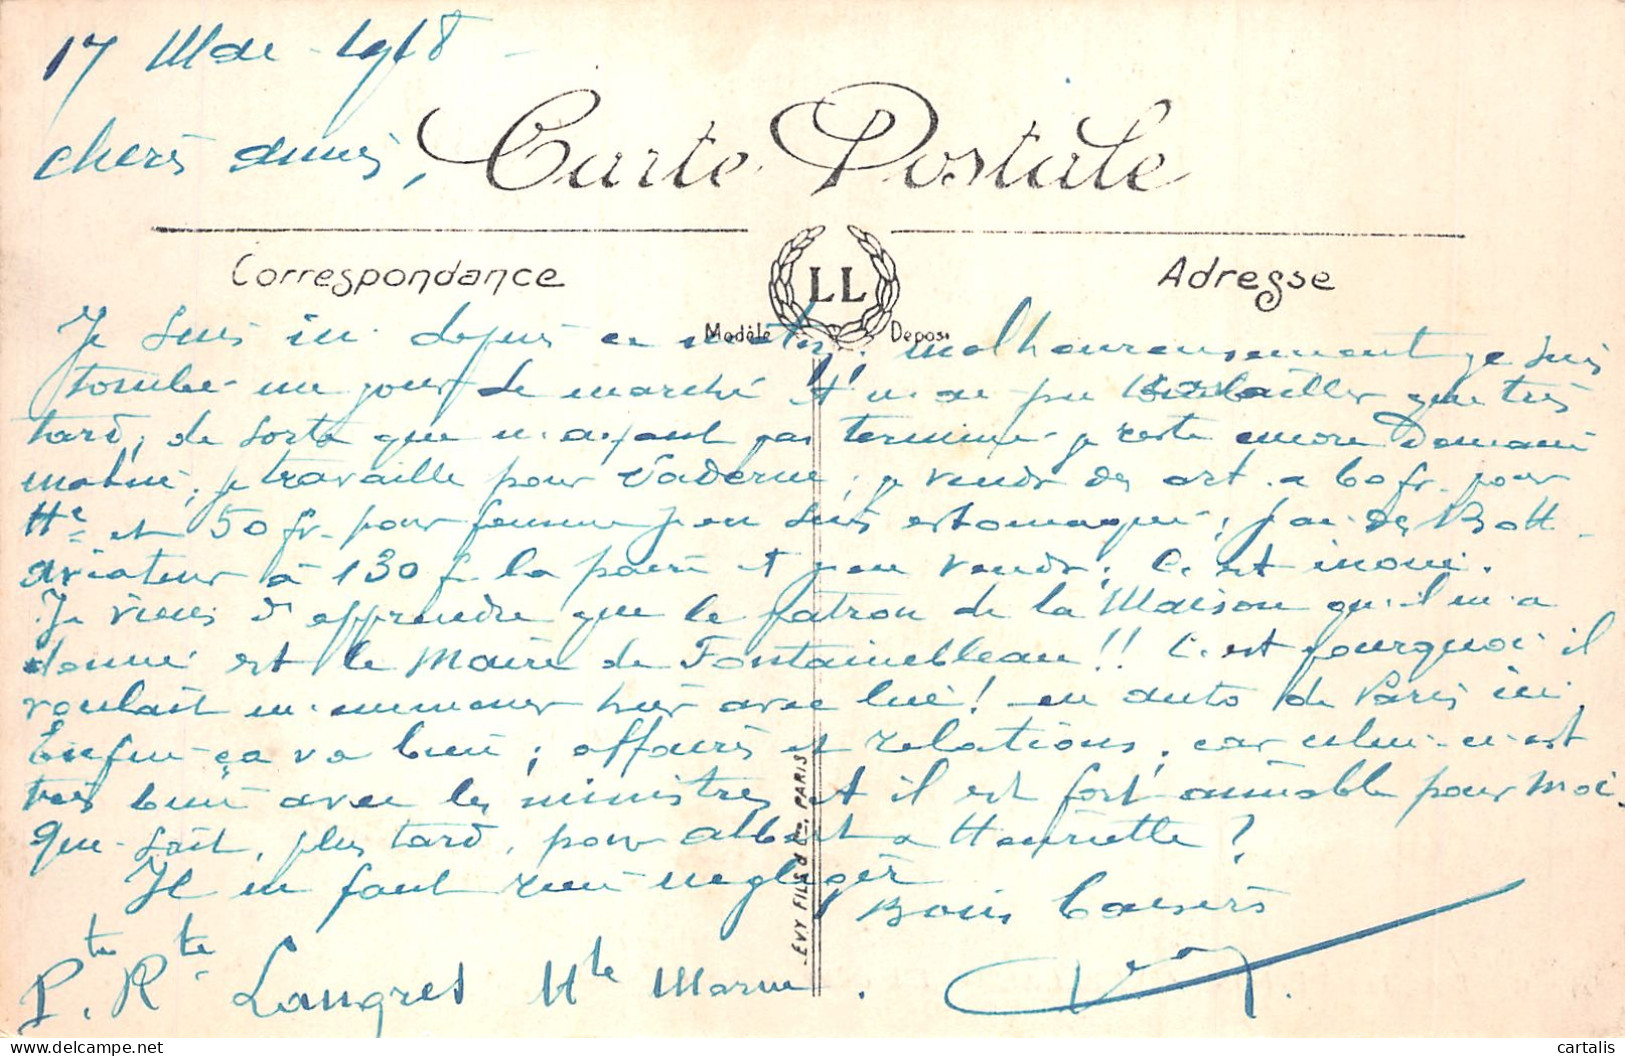 17 Mai 1918
chers amis,
Carte Postale
Correspondance
LL
Adresse
Modèle Déposé
Je suis ici depuis ce matin; malheureusement je suis
tombé un jour de marché et n'ai pu travailler que très
tard; de sorte que n'ayant pas terminé je reste encore demain
matin; je travaille pour ; je vends des art. à 60 fr. pour
He et 50 fr. pour femme j'en suis estomaqué; j'ai des Bott.
aviateur à 130 f la paire et j'en vends; C'est inouï.
Je viens d'apprendre que le patron de la Maison qu'il m'a
donné est le Maire de Fontainebleau!! C'est pourquoi il
voulait m'emmener hier avec lui! en auto de Paris ici.
Enfin ça va bien; affaires et relations; car celui-ci est
très bien avec les ministres et il est fort aimable pour moi.
que sait, plus tard, pour Albert et Henriette?
Il ne faut rien négliger
Bons baisers
Pte Rte Langres Hte Marne.
LEVY FILS & Cie, PARIS
cartalis